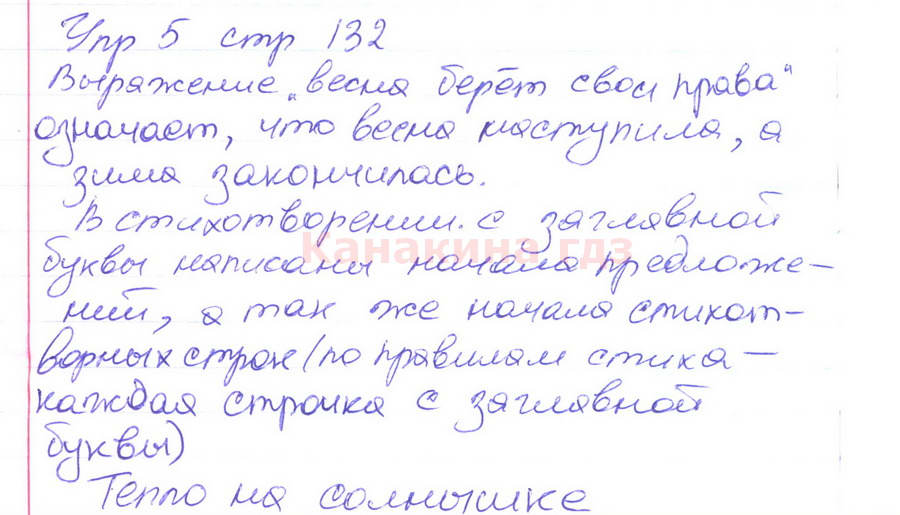 Упр 5 стр 132
Выражение „весна берёт свои права"
означает, что весна наступила, а
зима закончилась.
В стихотворении с заглавной
Канакина гдз
буквы написаны начала предложе-
ний, а так же начала стихот-
ворных строк (по правилам стиха –
каждая строчка с заглавной
буквы)
Тепло на солнышке